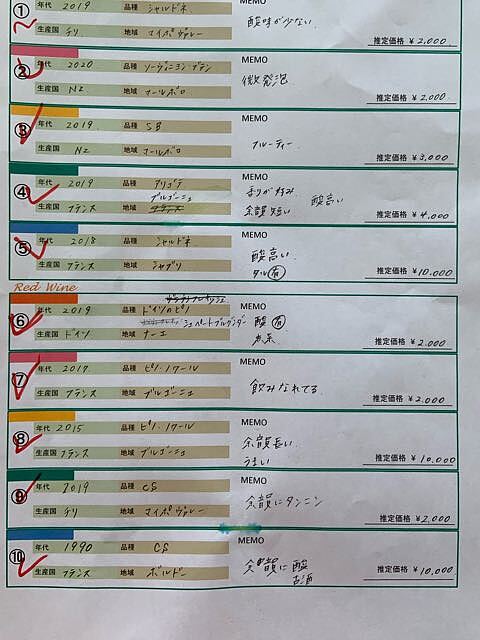 ① 年代 2019 品種 シャルドネ MEMO
酸味が少ない
生産国 チリ 地域 マイポヴァレー 推定価格 ¥2,000
② 年代 2020 品種 ソーヴィニヨン・ブラン MEMO
微発泡
生産国 NZ 地域 マールボロ 推定価格 ¥2,000
③ 年代 2019 品種 SB MEMO
フルーティー
生産国 NZ 地域 マールボロ 推定価格 ¥3,000
④ 年代 2019 品種 アリゴテ MEMO
ブルゴーニュ 酸高い
生産国 フランス 地域 余韻短い 推定価格 ¥4,000
⑤ 年代 2018 品種 シャルドネ MEMO
酸高い
生産国 フランス 地域 シャブリ タル 有 推定価格 ¥10,000
Red Wine
⑥ 年代 2019 品種 ドイツのピノ MEMO
シュペートブルグンダー 酸 有
生産国 ドイツ 地域 ナーエ 推定価格 ¥2,000
⑦ 年代 2017 品種 ピノ・ノワール MEMO
飲みなれてる
生産国 フランス 地域 ブルゴーニュ 推定価格 ¥2,000
⑧ 年代 2015 品種 ピノ・ノワール MEMO
余韻長い
生産国 フランス 地域 ブルゴーニュ うまい 推定価格 ¥10,000
⑨ 年代 2019 品種 CS MEMO
余韻にタンニン
生産国 チリ 地域 マイポヴァレー 推定価格 ¥2,000
⑩ 年代 1990 品種 CS MEMO
余韻に酸
生産国 フランス 地域 ボルドー 古酒 推定価格 ¥10,000